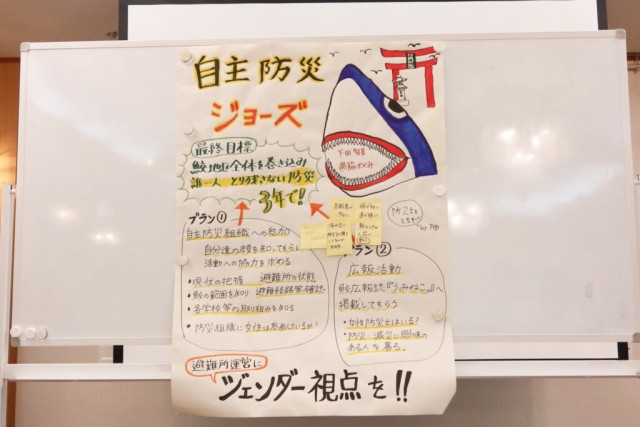 自主防災
ジョーズ
最終目標
鮫地区全体を巻き込み
誰一人とり残さない防災
3年で!
プラン①
自主防災組織への参加
自分達の存在を知ってもらい
活動への協力を求める
・現状の把握 避難所の状態
・鮫の範囲を知り 避難経路等確認
・各学校等の取り組みを知る
・防災組織に女性は参画しているか?
防災士を
プラン②
広報活動
鮫広報誌『うみねこ』へ
掲載してもらう
・女性防災士はいる?
・防災・減災に興味の
ある人を募る。
避難所運営に
ジェンダー視点を!!